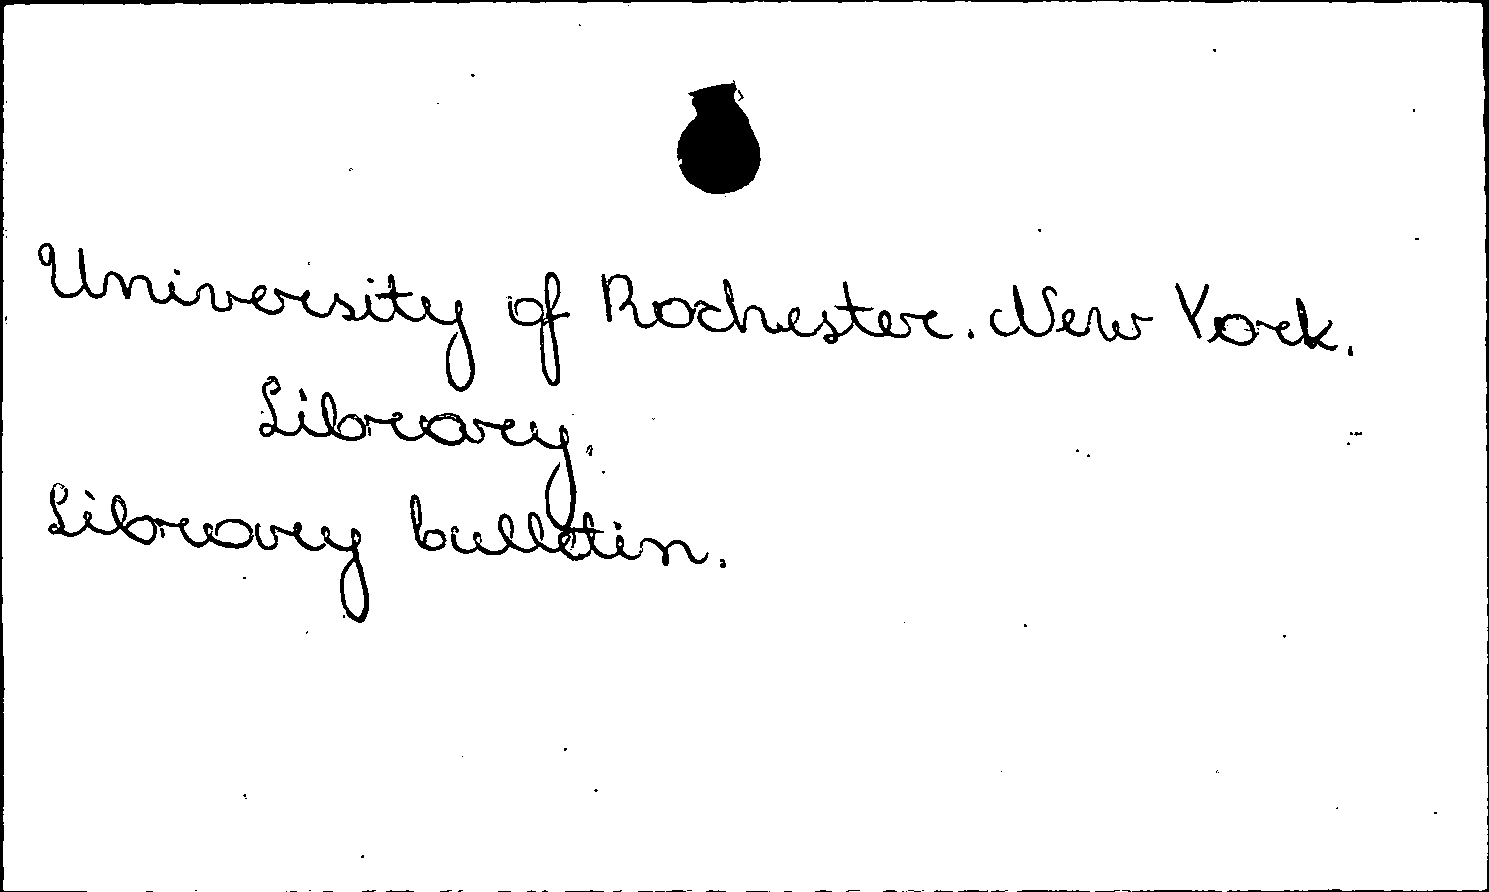 University of Rochester. New York.
Library.
Library bulletin.